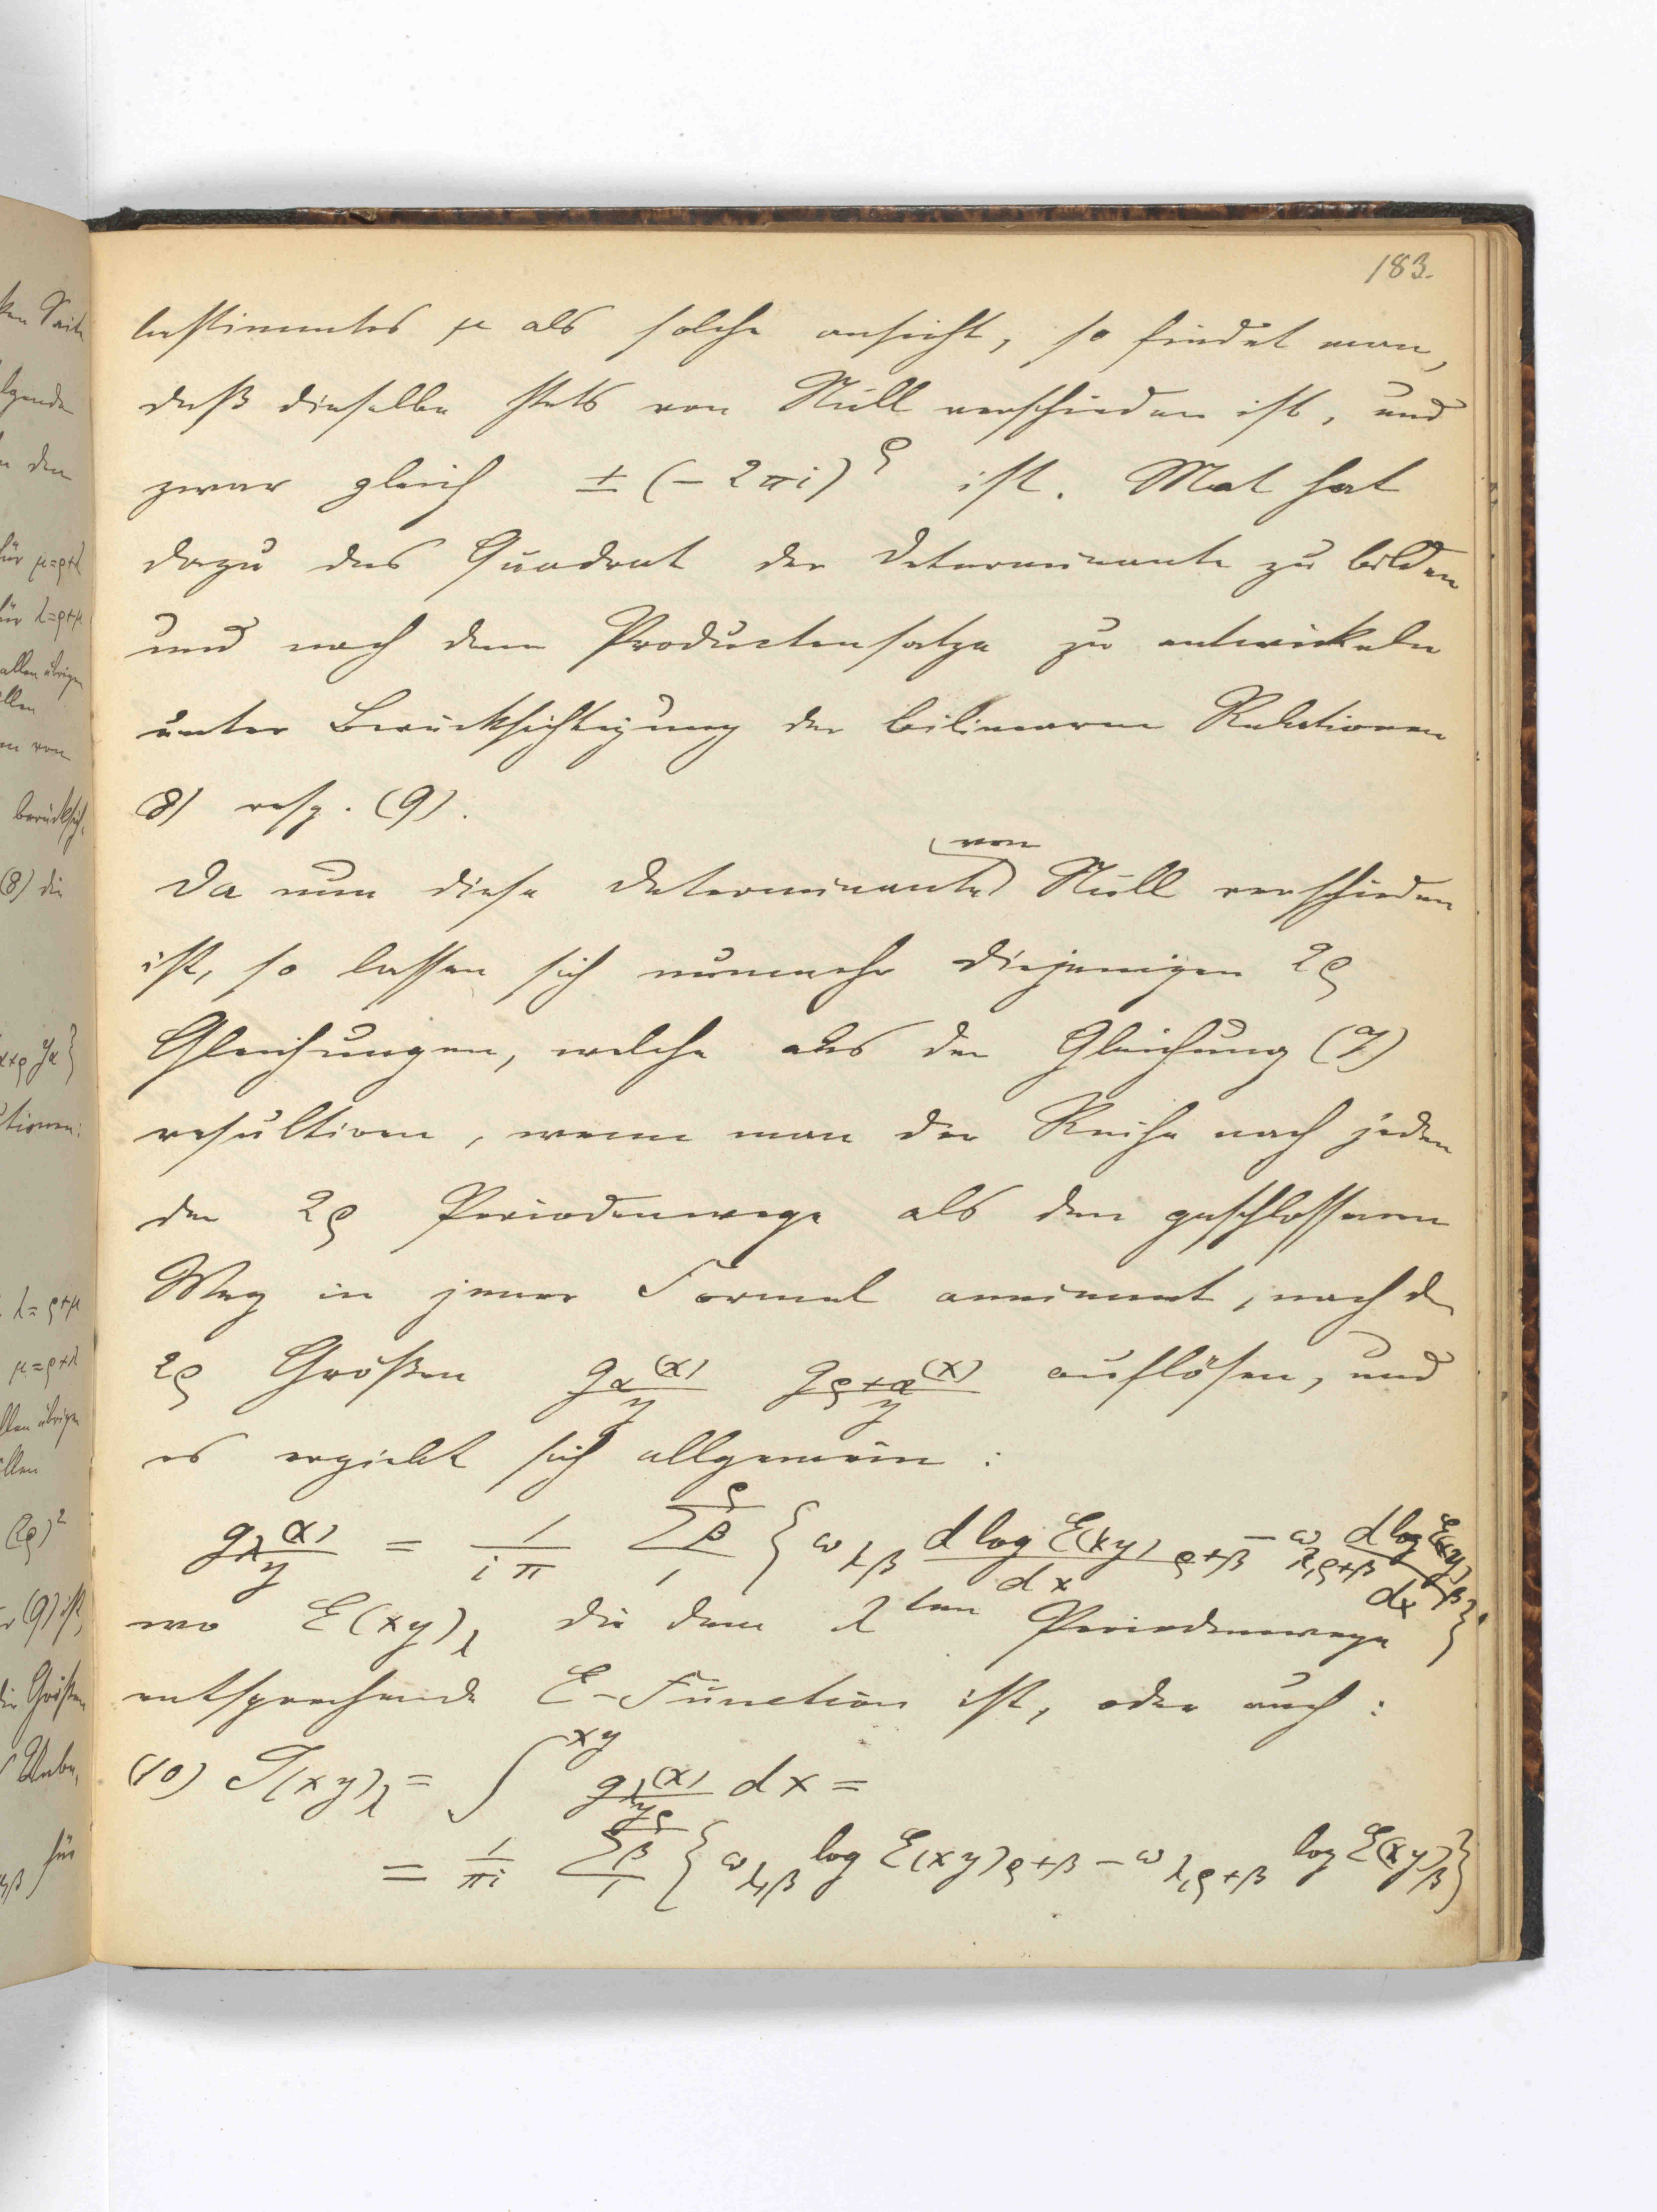 183.
bestimmtes μ als solche ansieht, so findet man,
daß dieselbe stets von Null verschieden ist, und
zwar gleich ± (− 2πi)^ρ ist. Mat hat
dazu das Quadrat der Determinante zu bilden
und nach dem Productensatze zu entwickeln
unter Berücksichtigung der bilinearen Relationen
8) resp. (9).
von
Da nun diese Determinante Null verschieden
ist, so lassen sich nunmehr diejenigen 2ρ
Gleichungen, welche aus der Gleichung (7)
resultiren, wenn man der Reihe nach jeden
der 2ρ Periodenwege als den geschlossenen
Weg in jener Formel annimmt, nach d
2ρ Größen g_α(x)/y g_{ρ+α}(x)/y auflösen, und
es ergiebt sich allgemein:
g_λ(x)/y = 1/iπ Σ_1^ρ β { ω_{λβ} d log E(xy)_{ρ+β}/dx − ω_{λ,ρ+β} d log E(xy)_β/dx }
wo E(xy)_λ die dem λ^ten Periodenwege
entsprechende E-Function ist, oder auch:
(10) J(xy)_λ = ∫^{xy} g_λ(x)/y dx =
= 1/πi Σ_1^ρ β { ω_{λ,β} log E(xy)_{ρ+β} − ω_{λ,ρ+β} log E(xy)_β }